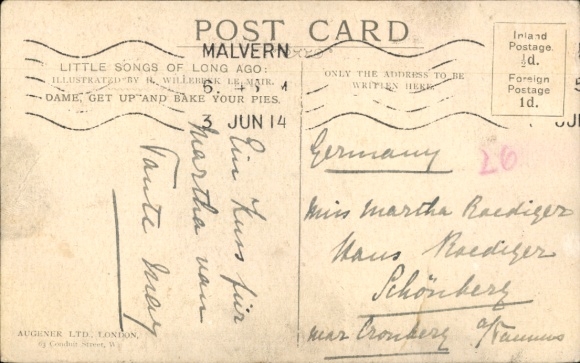 POST CARD
MALVERN
6. 45 PM
3 JUN 14
LITTLE SONGS OF LONG AGO:
ILLUSTRATED BY H. WILLEBEEK LE MAIR.
DAME, GET UP AND BAKE YOUR PIES.
ONLY THE ADDRESS TO BE
WRITTEN HERE.
Inland
Postage.
½d.
Foreign
Postage
1d.
JU
Ein Kuss für
Martha van
Tante May
Germany
26
Miss Martha Roediger
Haus Roediger
Schönberg
near Cronberg a/Taunus
AUGENER LTD., LONDON,
63 Conduit Street, W.